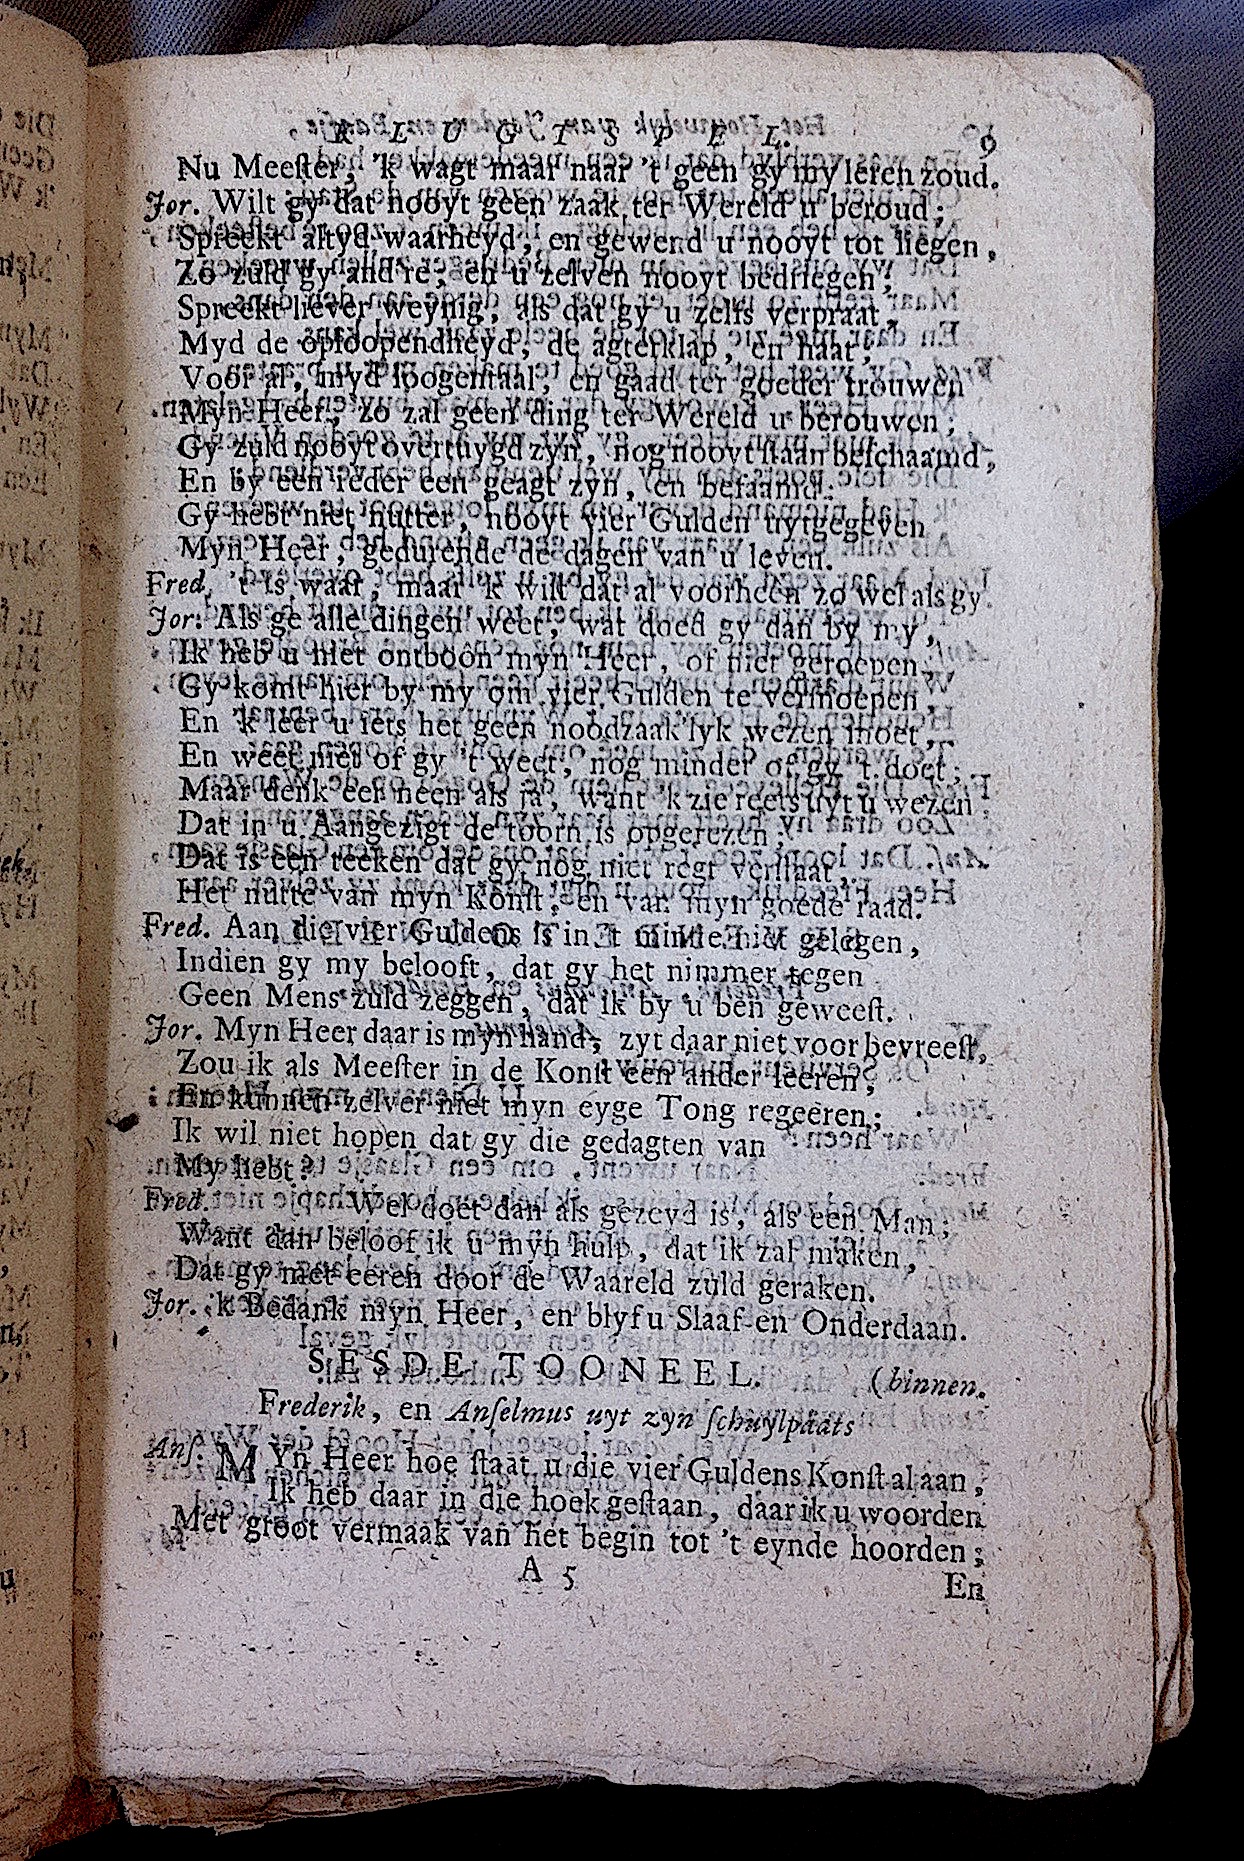 KLUGTSPEL. 9
Nu Meeſter, 'k wagt maar naar 't geen gy my leren zoud.
Jor. Wilt gy dat nooyt geen zaak ter Wereld u beroud;
Spreekt altyd waarheyd, en gewend u nooyt tot liegen,
Zo zuld gy and're, en u zelven nooyt bedriegen;
Spreekt liever weynig, als dat gy u zelfs verpraat,
Myd de oploopendheyd, de agterklap, en haat;
Voor al, myd loogentaal, en gaad ter goeder trouwen
Myn Heer, zo zal geen ding ter Wereld u berouwen;
Gy zuld nooyt overtuygd zyn, nog nooyt ſtaan beſchaamd,
En by een ieder een geagt zyn, en befaamd:
Gy hebt niet nutter, nooyt vier Gulden uytgegeven
Myn Heer, gedurende de dagen van u leven.
Fred. 't Is waar, maar 'k wiſt dat al voorheen zo wel als gy.
Jor: Als ge alle dingen weet, wat doed gy dan by my,
Ik heb u niet ontboôn myn Heer, of hier geroepen,
Gy komt hier by my om vier Gulden te vermoepen,
En 'k leer u iets het geen noodzaak'lyk wezen moet,
En weet niet of gy 't weet, nog minder of gy 't doet;
Maar denk eer neen als ja, want 'k zie reets uyt u wezen
Dat in u Aangezigt de toorn is opgerezen;
Dat is een teeken dat gy nog niet regt verſtaat
Het nutte van myn Konſt, en van myn goede raad.
Fred. Aan die vier Guldens is in 't minſte niet gelegen,
Indien gy my belooft, dat gy het nimmer tegen
Geen Mens zuld zeggen, dat ik by u ben geweeſt.
Jor. Myn Heer daar is myn hand, zyt daar niet voor bevreeſt,
Zou ik als Meeſter in de Konſt een ander leeren,
En kunnen zelver niet myn eyge Tong regeeren;
Ik wil niet hopen dat gy die gedagten van
My hebt?
Fred. Wel doet dan als gezeyd is, als een Man;
Want dan beloof ik u myn hulp, dat ik zal maken,
Dat gy met eeren door de Waareld zuld geraken.
Jor. 'k Bedank myn Heer, en blyf u Slaaf en Onderdaan.
SESDE TOONEEL. (binnen.
Frederik, en Anſelmus uyt zyn ſchuylplaats
Anſ: MYn Heer hoe ſtaat u die vier Guldens Konſt al aan,
Ik heb daar in die hoek geſtaan, daar ik u woorden
Met groot vermaak van het begin tot 't eynde hoorden;
A 5
En